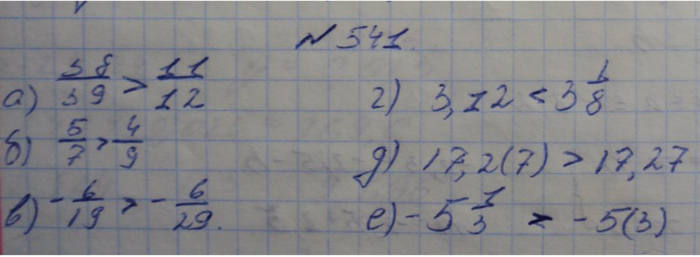 № 541.
а) 38/39 > 11/12
б) 5/7 > 4/9
в) -6/19 > -6/29.
г) 3,12 < 3 1/8
д) 17,2(7) > 17,27
е) -5 1/3 > -5(3)